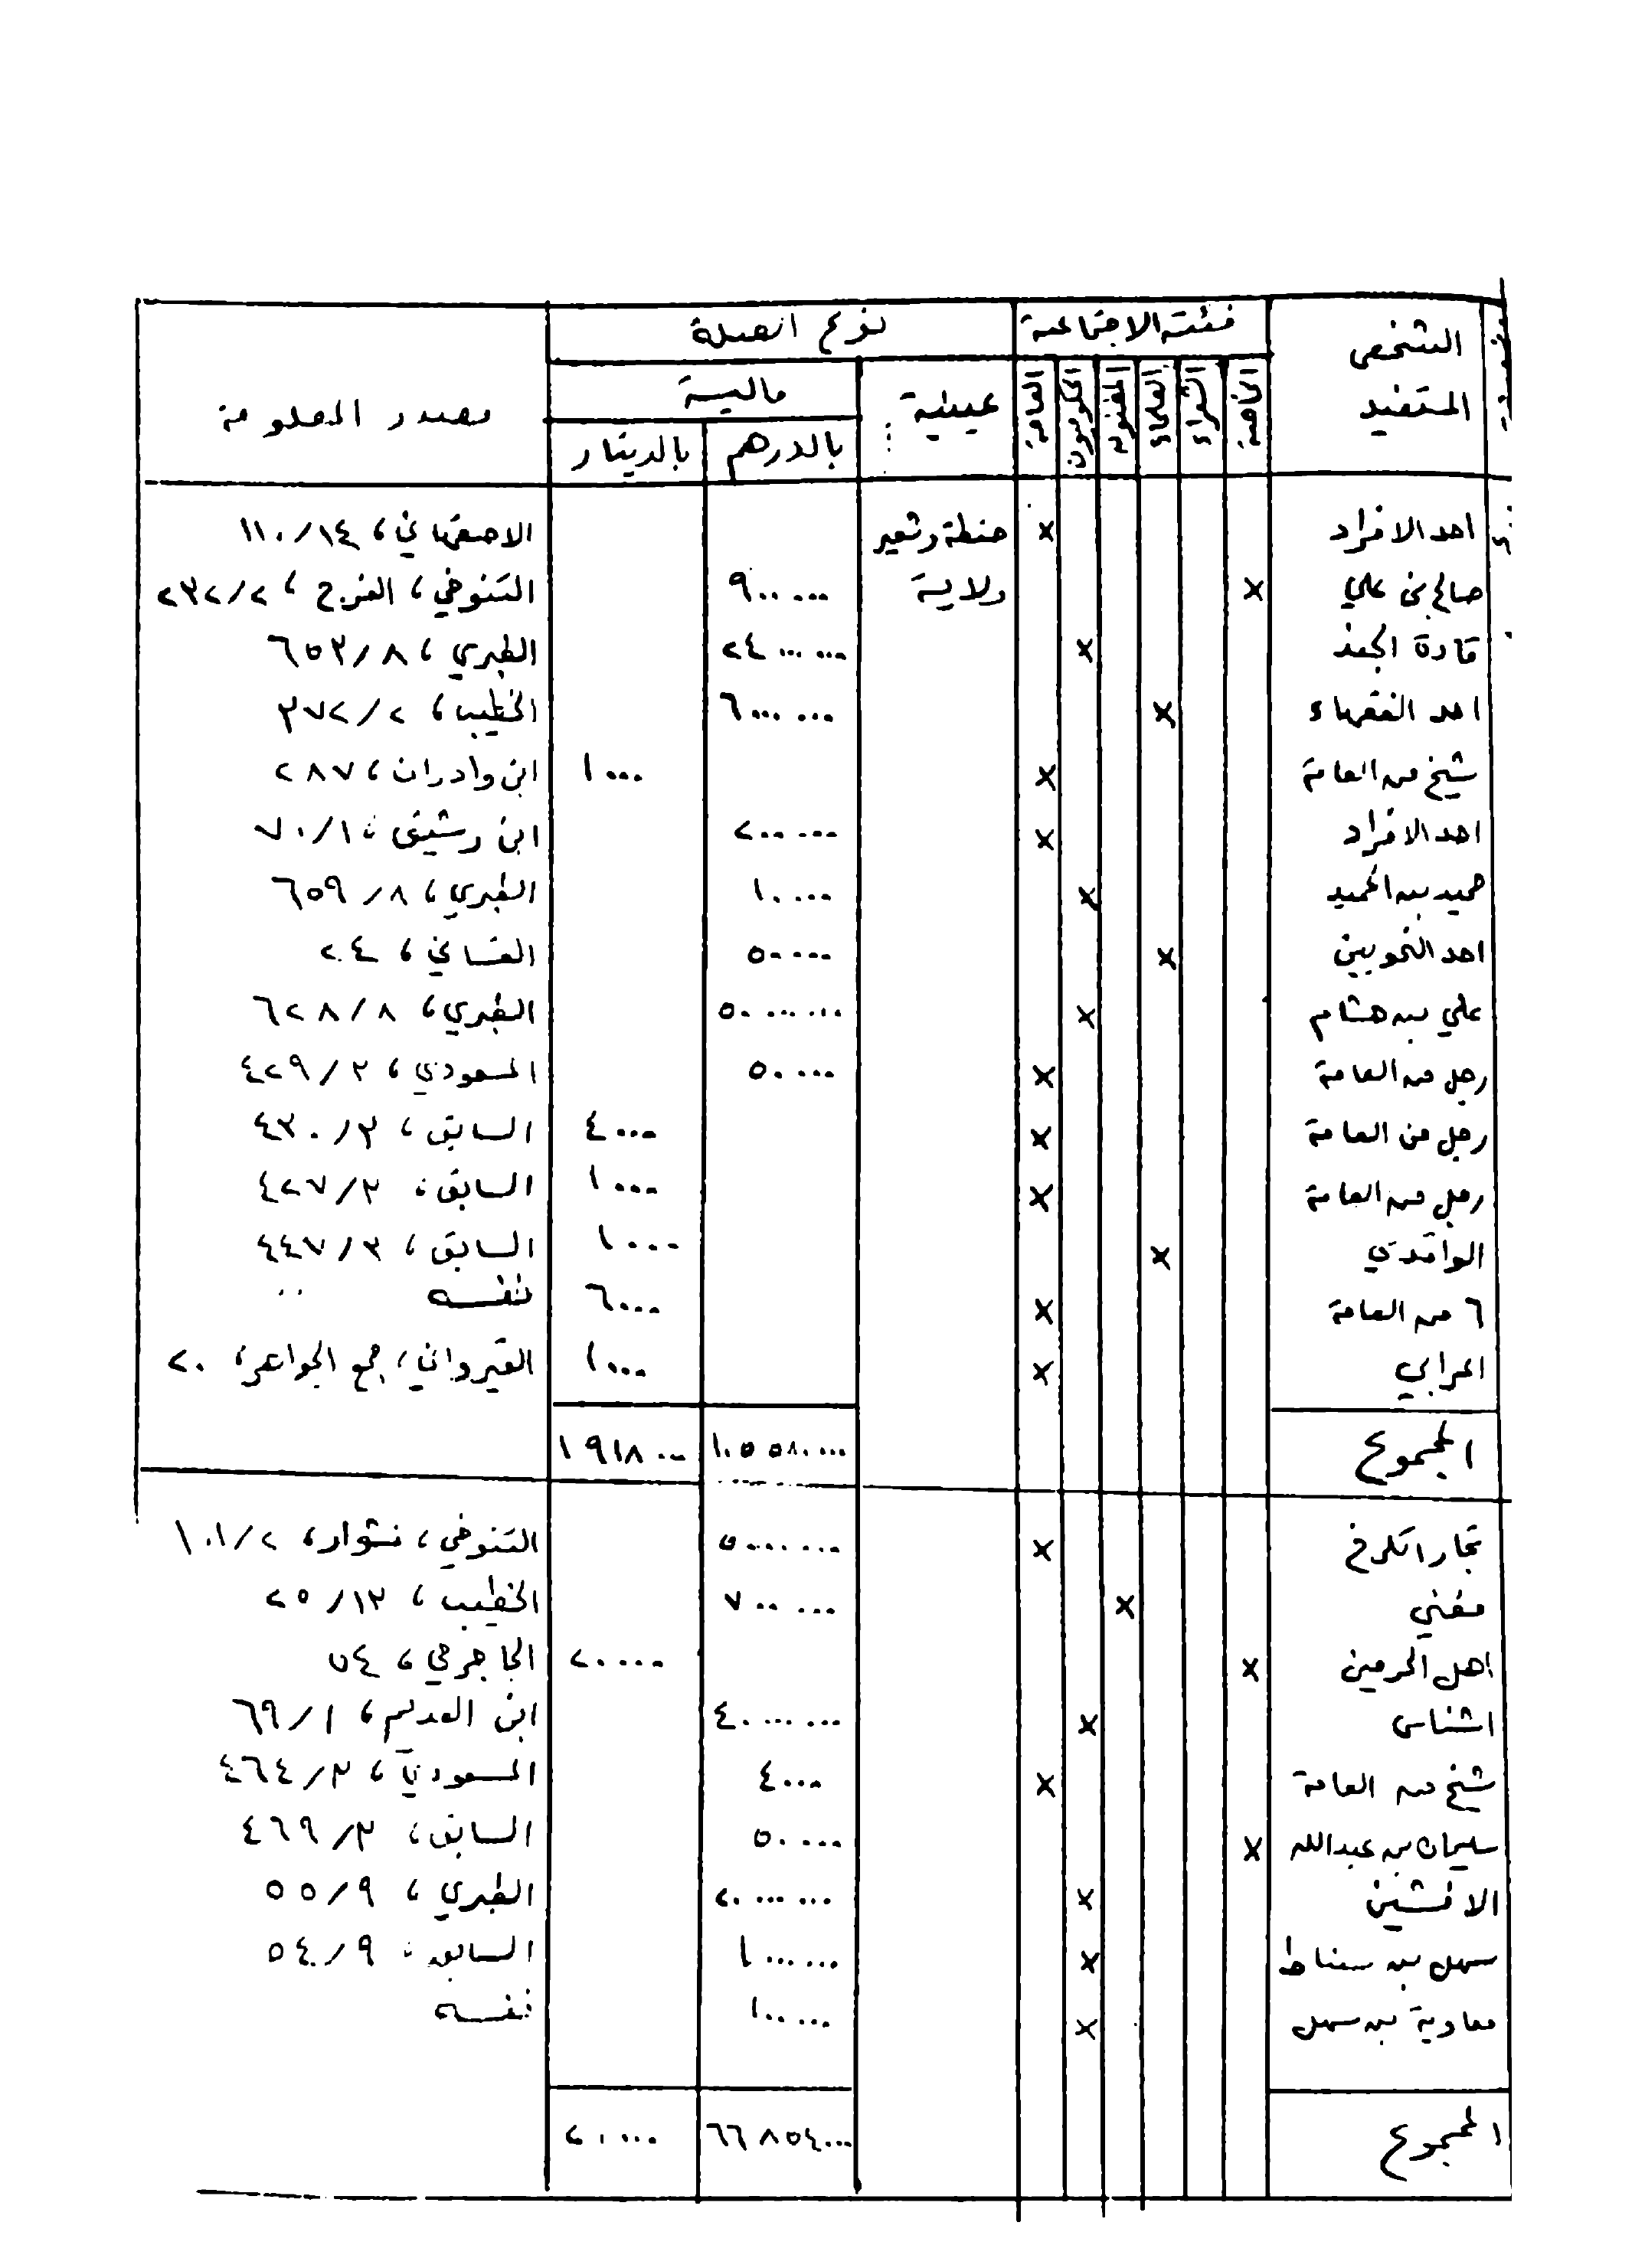 الشخص المستفيد | فئته الاجتماعية | نوع الصلة | مصدر المعلومة
الخاصة | الشعراء | العلماء | المغنون | الحكوميون | العامة | عينية | مالية
بالدرهم | بالدينار
احد الافراد | × | حنطة وشعير | الاصفهاني، ١٤/١١٠
صالح بن علي | × | ولاية | ٩٠٠٠٠٠ | التنوخي، الفرج، ٢/٢٣٢
قادة الجند | × | ٢٤٠٠٠٠٠٠ | الطبري، ٨/٦٥٣
احد الفقهاء | × | ٦٠٠٠٠٠٠ | الخطيب، ٢/٣٧٢
شيخ من العامة | × | ١٠٠٠ | ابن وادران، ٢٨٧
احد الافراد | × | ٢٠٠٠٠٠ | ابن رشيق، ١/٧٠
حميد بن الحميد | × | ١٠٠٠٠ | الطبري، ٨/٦٥٩
احد النحويين | × | ٥٠٠٠٠ | الغساني، ٢٠٤
علي بن هشام | × | ٥٠٠٠٠٠٠٠ | الطبري، ٨/٦٢٨
رجل من العامة | × | ٥٠٠٠٠ | المسعودي، ٣/٤٢٩
رجل من العامة | × | ٤٠٠٠ | السابق، ٣/٤٣٠
رجل من العامة | × | ١٠٠٠ | السابق، ٣/٤٢٧
الواقدي | × | ١٠٠٠٠ | السابق، ٣/٤٤٧
٦ من العامة | × | ٦٠٠٠ | نفسه
اعرابي | × | ١٠٠٠ | القيرواني، جمع الجواهر، ٢٠
المجموع | ١٠٥٥٨٠٠٠٠ | ١٩١٨٠٠٠
تجار الكرخ | × | ٥٠٠٠٠٠٠ | التنوخي، نشوار، ٢/١٠١
مغني | × | ٧٠٠٠٠٠ | الخطيب، ١٣/٢٥
اهل الحرمين | × | ٢٠٠٠٠ | الجاجرمي، ٥٤
اشناس | × | ٤٠٠٠٠٠٠٠ | ابن العديم، ١/٦٩
شيخ من العامة | × | ٤٠٠٠ | المسعودي، ٣/٤٦٤
سليمان بن عبدالله | × | ٥٠٠٠٠ | السابق، ٣/٤٦٩
الافشين | × | ٢٠٠٠٠٠٠٠ | الطبري، ٩/٥٥
سهل بن سنباط | × | ١٠٠٠٠٠٠ | السابق، ٩/٥٤
معاوية بن سهل | × | ١٠٠٠٠٠ | نفسه
المجموع | ٦٦٨٥٤٠٠٠ | ٢٠٠٠٠